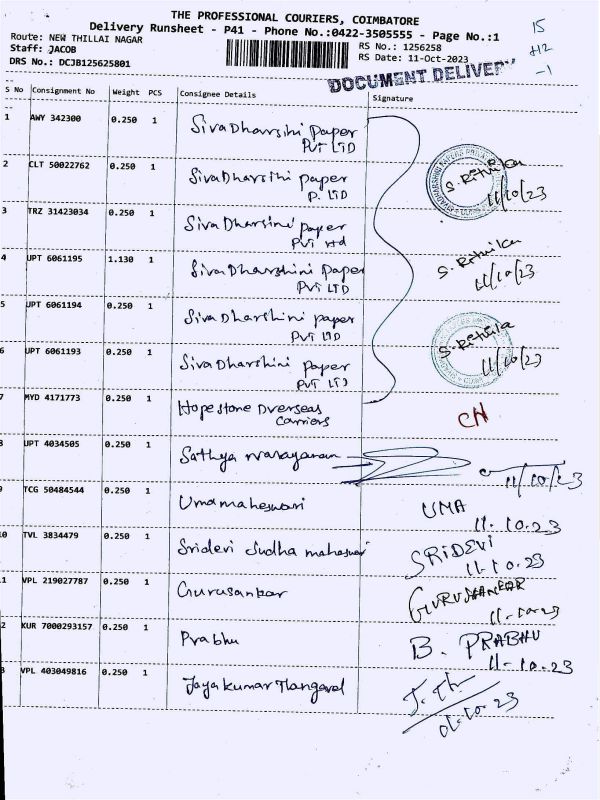 THE PROFESSIONAL COURIERS, COIMBATORE
Delivery Runsheet - P41 - Phone No.:0422-3505555 - Page No.:1
Route: NEW THILLAI NAGAR RS No.: 1256258 15
Staff: JACOB RS Date: 11-Oct-2023 +12
DRS No.: DCJB125625801 -1
DOCUMENT DELIVERY
S No Consignment No Weight PCS Consignee Details Signature
1 AWY 342300 0.250 1 Siva Dharsini paper
PVT LTD
2 CLT 50022762 0.250 1 Siva Dharsini paper S. Rithika
P. LTD 11/10/23
3 TRZ 31423034 0.250 1 Siva Dharsini paper
PVT Ltd
4 UPT 6061195 1.130 1 Siva Dharshini Paper S. Rithika
PVT LTD 11/10/23
5 UPT 6061194 0.250 1 Siva Dharshini paper
PVT LTD S. Rithika
6 UPT 6061193 0.250 1 Siva Dharshini paper 11/10/23
PVT LTD
7 MYD 4171773 0.250 1 Hopestone Overseas CH
Carriers
8 UPT 4034505 0.250 1 Sathya narayanan
11/10/23
9 TCG 50484544 0.250 1 Umamaheswari UMA
11.10.23
10 TVL 3834479 0.250 1 Sridevi Sudha maheswari SRIDEVI
11.10.23
11 VPL 219027787 0.250 1 Gurusankar GURUSHANKAR
11.10.23
12 KUR 7000293157 0.250 1 Prabhu B. PRABHU
11.10.23
13 VPL 403049816 0.250 1 Jayakumar Tlangavel J. Th